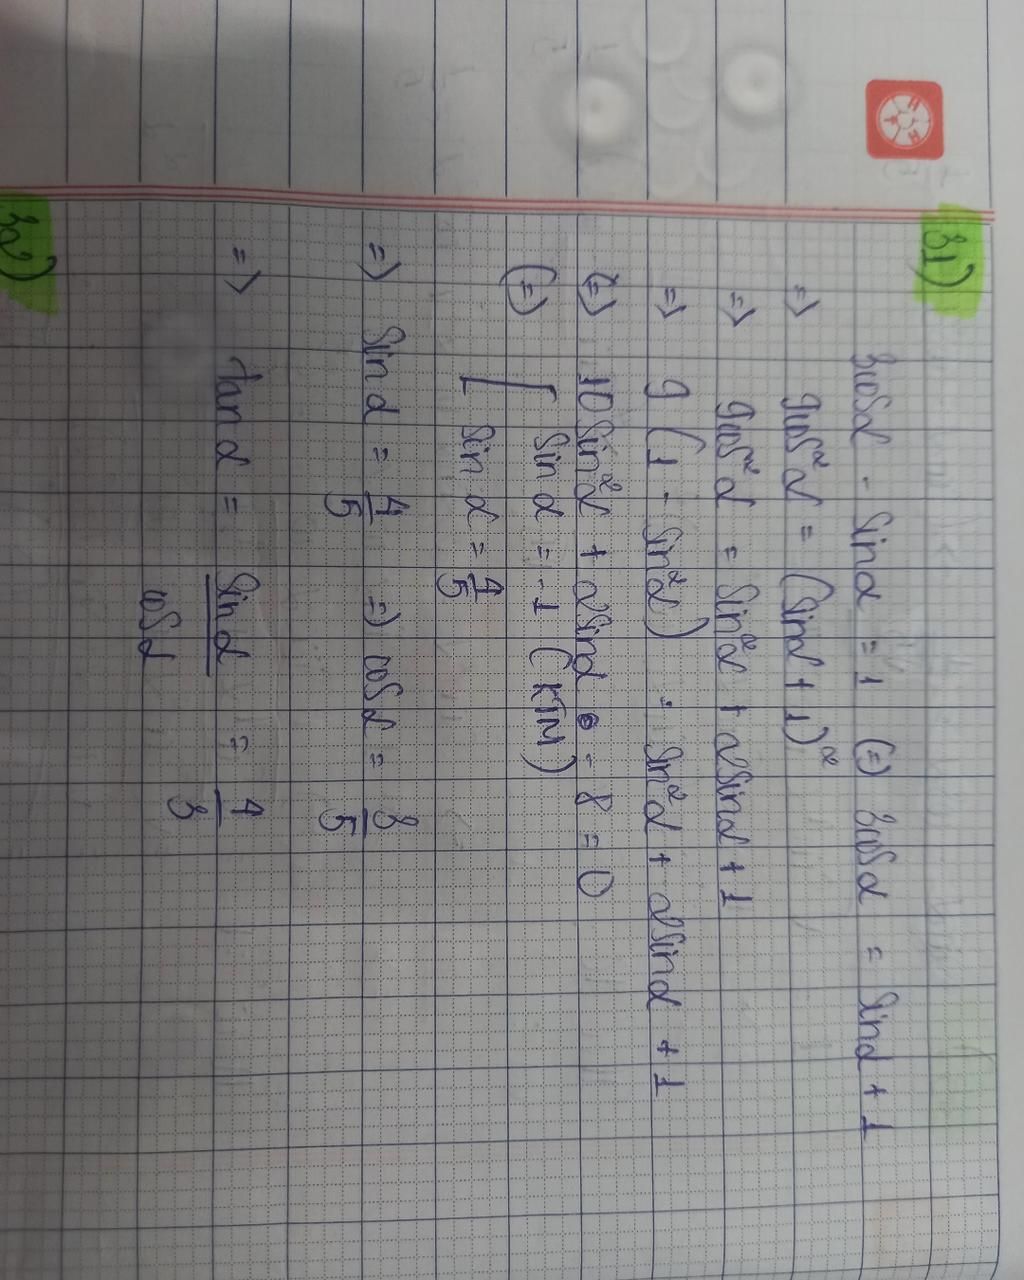 31)
3cosα - sinα = 1 (=) 3cosα = sinα + 1
=> 9cos²α = (sinα + 1)²
=> 9cos²α = sin²α + 2sinα + 1
=> 9(1 - sin²α) = sin²α + 2sinα + 1
(=) 10sin²α + 2sinα - 8 = 0
(=) [ sinα = -1 (KTM)
sinα = 4/5
=> sinα = 4/5 => cosα = 3/5
=> tanα = sinα/cosα = 4/3
32)